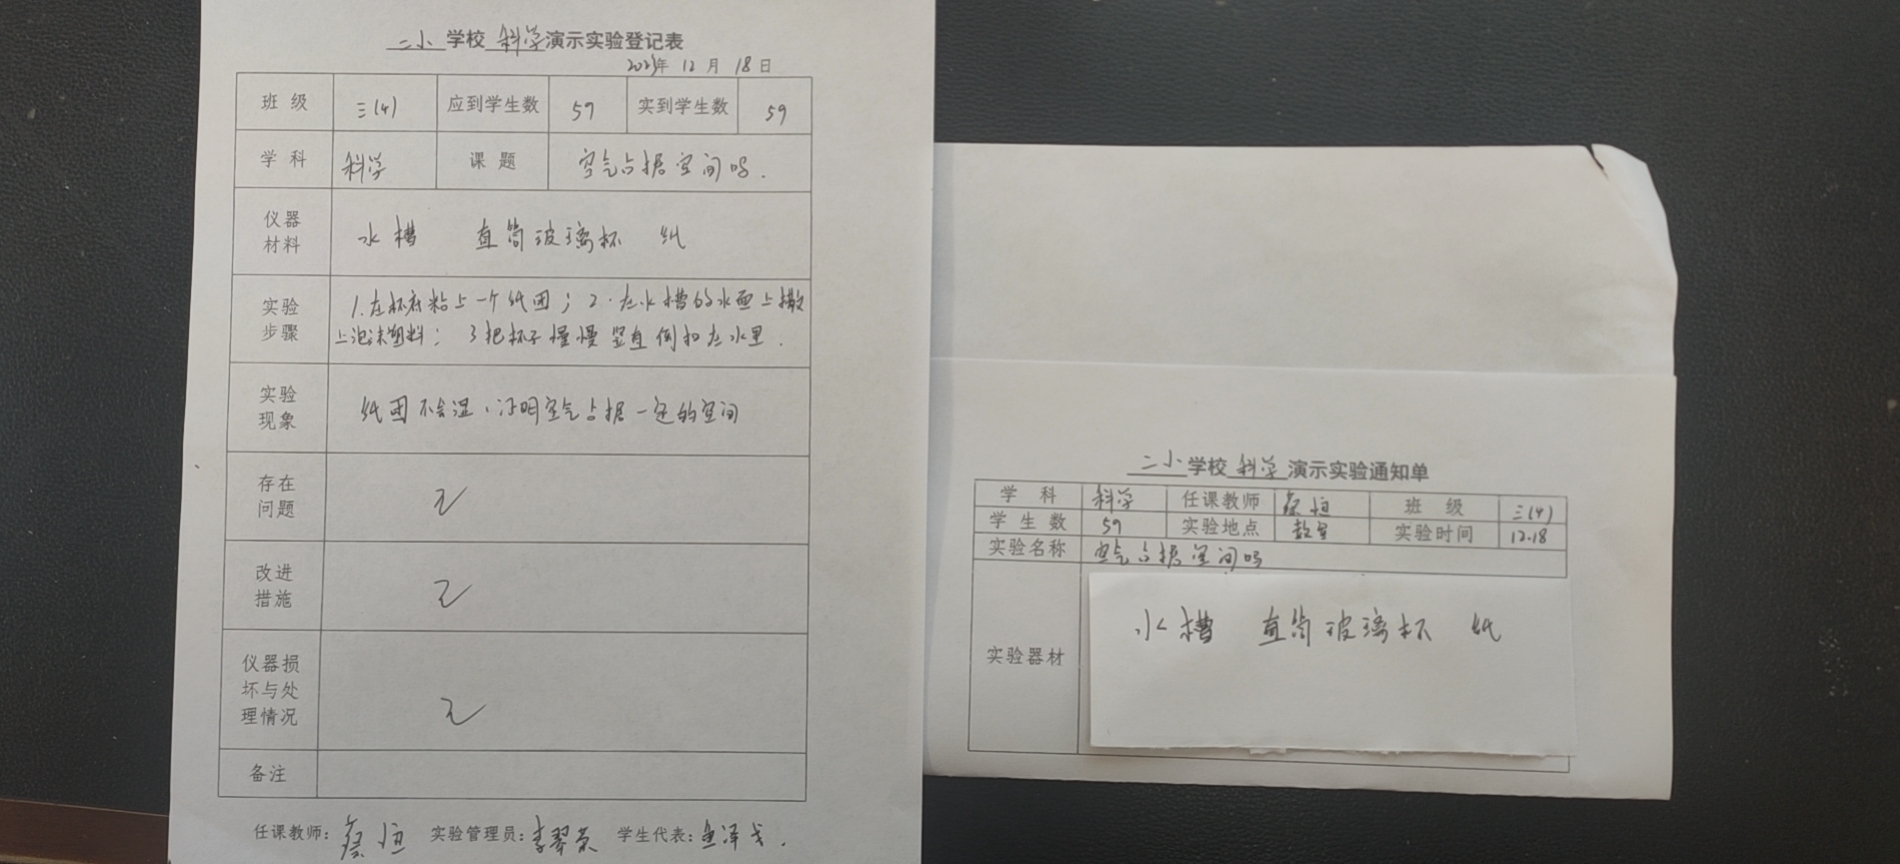 二小学校科学演示实验登记表
2023年 12月 18日
班级 三(4) 应到学生数 59 实到学生数 59
学科 科学 课题 空气占据空间吗.
仪器材料 水槽 直筒玻璃杯 纸
实验步骤 1.在杯底粘上一个纸团; 2.在水槽的水面上撒
上泡沫塑料; 3把杯子慢慢竖直倒扣在水里.
实验现象 纸团不会湿、证明空气占据一定的空间
存在问题 无
改进措施 无
仪器损坏与处理情况 无
备注
任课教师: 蔡恒 实验管理员: 李翠荣 学生代表:
二小学校科学演示实验通知单
学科 科学 任课教师 蔡恒 班级 三(4)
学生数 59 实验地点 教室 实验时间 12.18
实验名称 空气占据空间吗
实验器材 水槽 直筒玻璃杯 纸